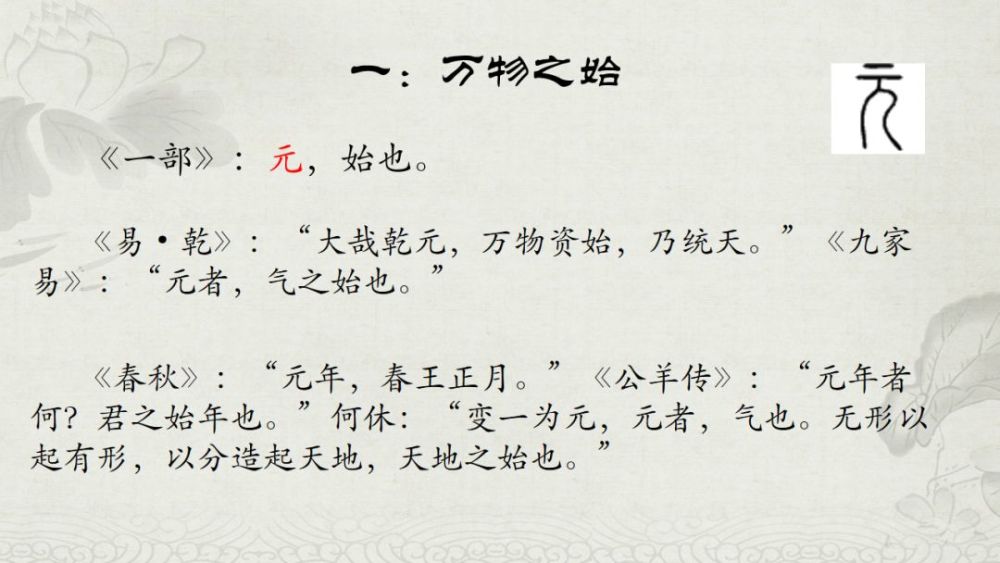 一：万物之始
元
《一部》：元，始也。
《易·乾》：“大哉乾元，万物资始，乃统天。”《九家
易》：“元者，气之始也。”
《春秋》：“元年，春王正月。”《公羊传》：“元年者
何？君之始年也。”何休：“变一为元，元者，气也。无形以
起有形，以分造起天地，天地之始也。”